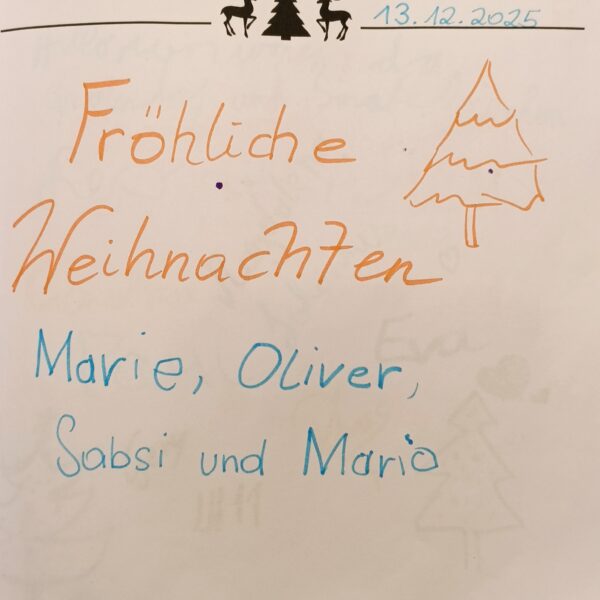 13.12.2025
Fröhliche
Weihnachten
Marie, Oliver,
Sabsi und Mario